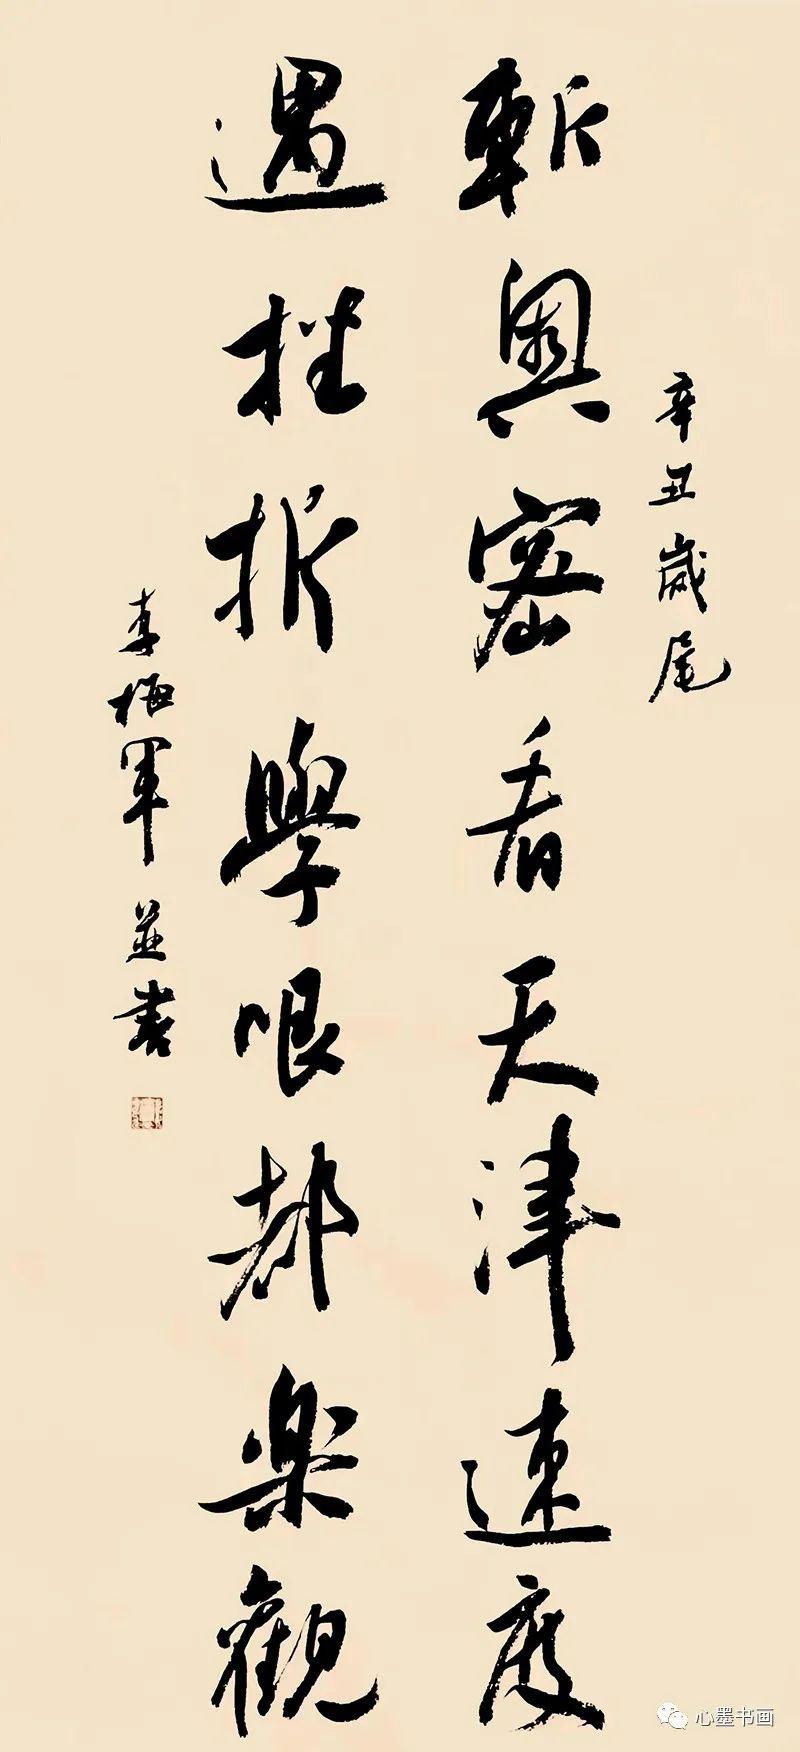 辛丑歲尾
斬奧密看天津速度
遇挫折學哏都樂觀
李梅軍並書
心墨书画